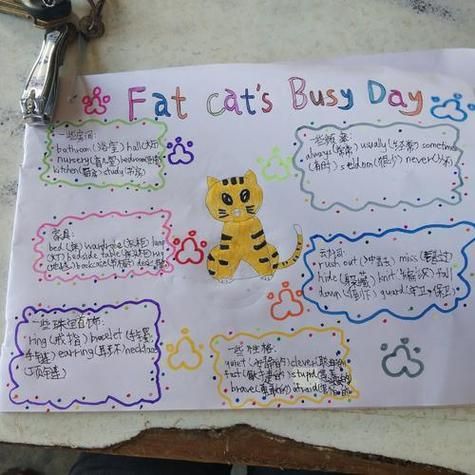 Fat cat's Busy Day
一些房间:
bathroom (浴室) hall (大厅)
nursery (育儿室) bedroom
kitchen (厨房) study (书房)
一些频率:
always usually sometimes
(有时) seldom (很少) never
家具:
bed (床) wardrobe (衣柜) lamp
(灯) bedside table (床头柜) rug
(地毯) bookcase (书柜) desk
动词:
rush out (冲出去) miss (错过)
hide (躲藏) knit fall
down (倒下) guard
一些珠宝首饰:
ring (戒指) bracelet (手镯,
手链) earring (耳环) necklace
(项链)
一些性格:
quiet (安静的) clever (聪明的)
fat stupid
brave (勇敢的) afraid